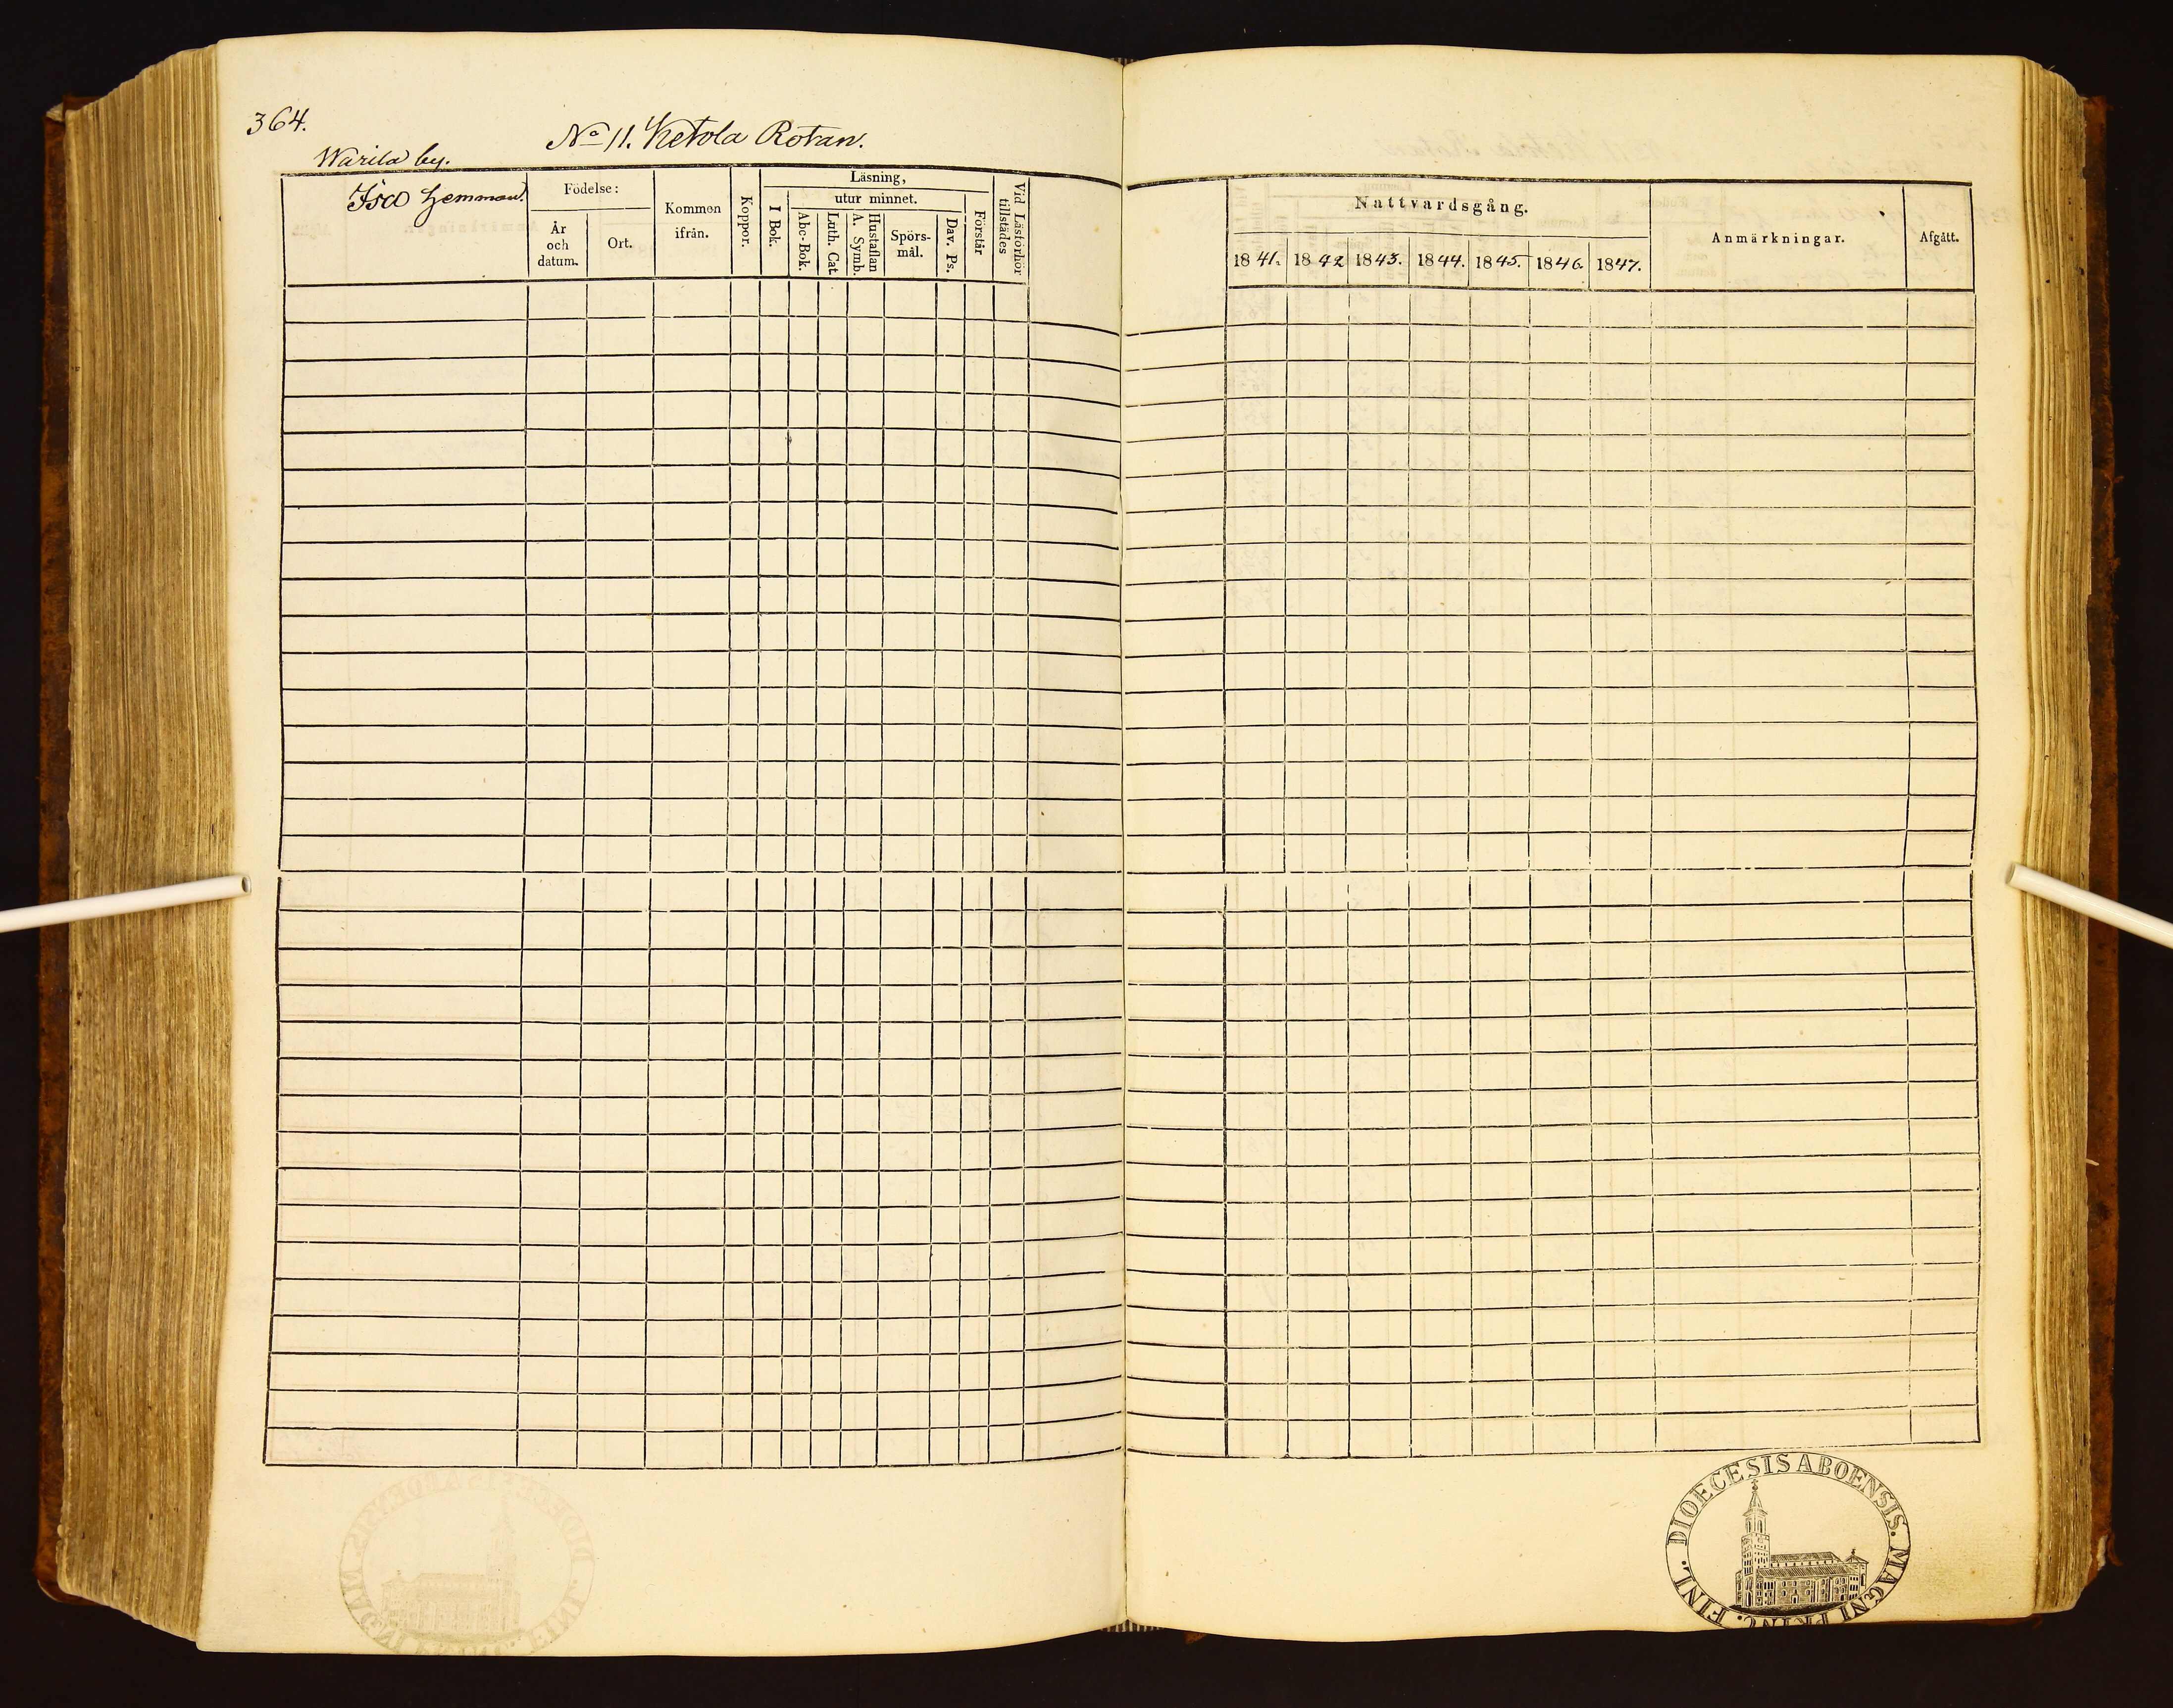 364.
No 11. Ketola Rotan.
Warila by.
Iso Hemman.
Födelse:
År och datum.
Ort.
Kommen ifrån.
Koppor.
Läsning,
I Bok.
utur minnet.
Abc-Bok.
Luth. Cat.
Hustaflan
A. Symb.
Spörs-
mål.
Dav. Ps.
Förstår
Vid Läsförhör
tillstädes
Nattvardsgång.
1841. 1842 1843. 1844. 1845. 1846. 1847.
Anmärkningar.
Afgått.
DIOECESIS ABOENSIS. MAGNI PRINC. FINL.